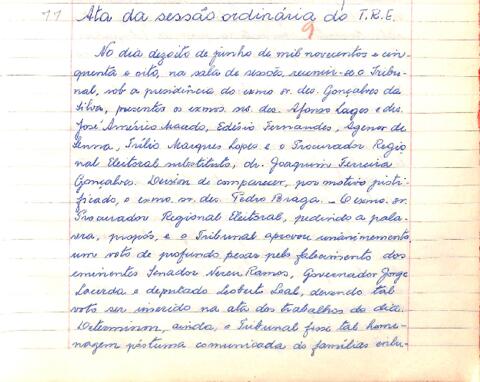 77 Ata da sessão ordinária do T.R.E.
9
No dia dezoito de junho de mil novecentos e cin-
quenta e oito, na sala de sessão, reuniu-se o Tribu-
nal, sob a presidência do exmo sr. des. Gonçalves da
Silva, presentes os exmos. srs. des. Afonso Lages e drs.
José Américo Macedo, Edésio Fernandes, Agenor de
Senna, Túlio Marques Lopes e o Procurador Regio
nal Eleitoral substituto, dr. Joaquim Ferreira
Gonçalves. Deixou de comparecer, por motivo justi-
ficado, o exmo. sr. des. Pedro Braga. - O exmo. sr.
Procurador Regional Eleitoral, pedindo a pala-
vra, propôs, e o Tribunal aprovou unanimemente,
um voto de profundo pesar pelo falecimento dos
eminentes Senador Nereu Ramos, Governador Jorge
Lacerda e deputado Leoberto Leal, devendo tal
voto ser inserido na ata dos trabalhos do dia.
Determinou, ainda, o Tribunal fosse tal home-
nagem póstuma comunicada às famílias enlu-